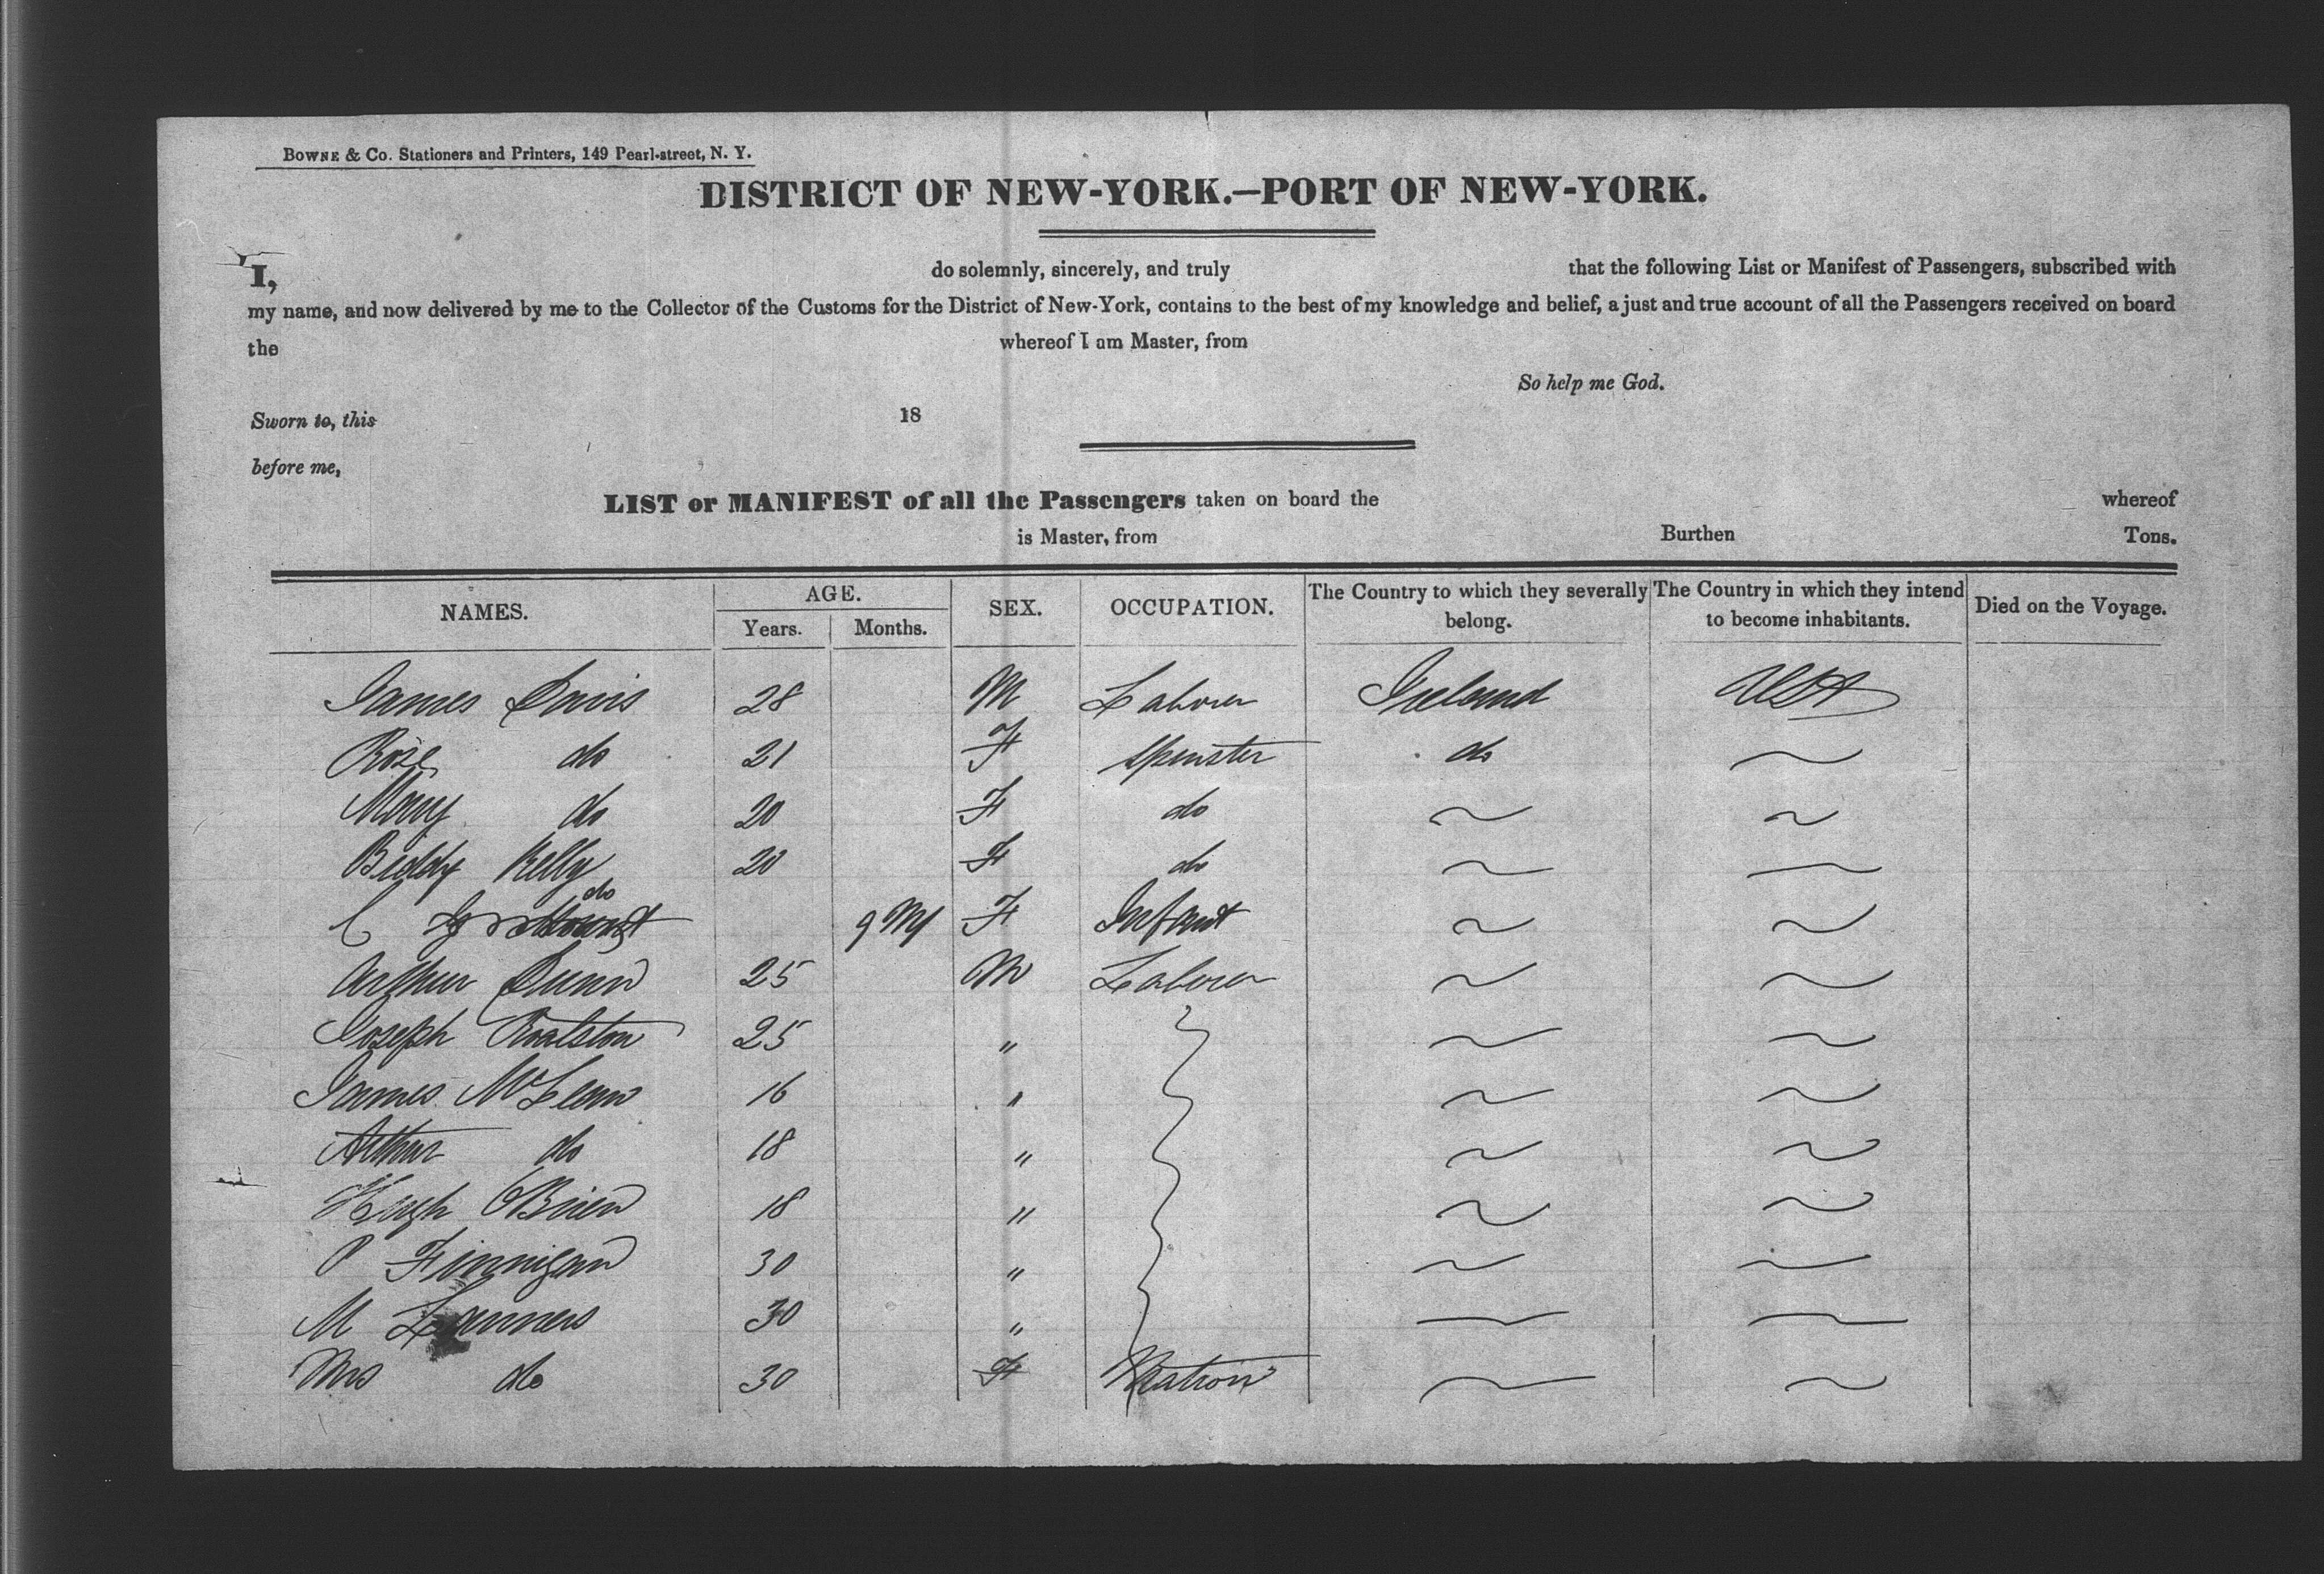 BOWNE & Co. Stationers and Printers, 149 Pearl-street, N. Y.
DISTRICT OF NEW-YORK.—PORT OF NEW-YORK.
I, do solemnly, sincerely, and truly that the following List or Manifest of Passengers, subscribed with
my name, and now delivered by me to the Collector of the Customs for the District of New-York, contains to the best of my knowledge and belief, a just and true account of all the Passengers received on board
the whereof I am Master, from
So help me God.
Sworn to, this 18
before me,
LIST or MANIFEST of all the Passengers taken on board the whereof
is Master, from Burthen Tons.
NAMES. AGE. Years. Months. SEX. OCCUPATION. The Country to which they severally belong. The Country in which they intend to become inhabitants. Died on the Voyage.
James Davis 28 M Laborer Ireland USA
Rose do 21 F Spinster do
Mary do 20 F do
Biddy Kelly 20 F do
C do 9 M F Infant
Arthur Dunn 25 M Laborer
Joseph Roalston 25 "
James McLean 16 "
Arthur do 18 "
Hugh OBrien 18 "
P Finnigan 30 "
M 30 "
Mrs do 30 F Matron